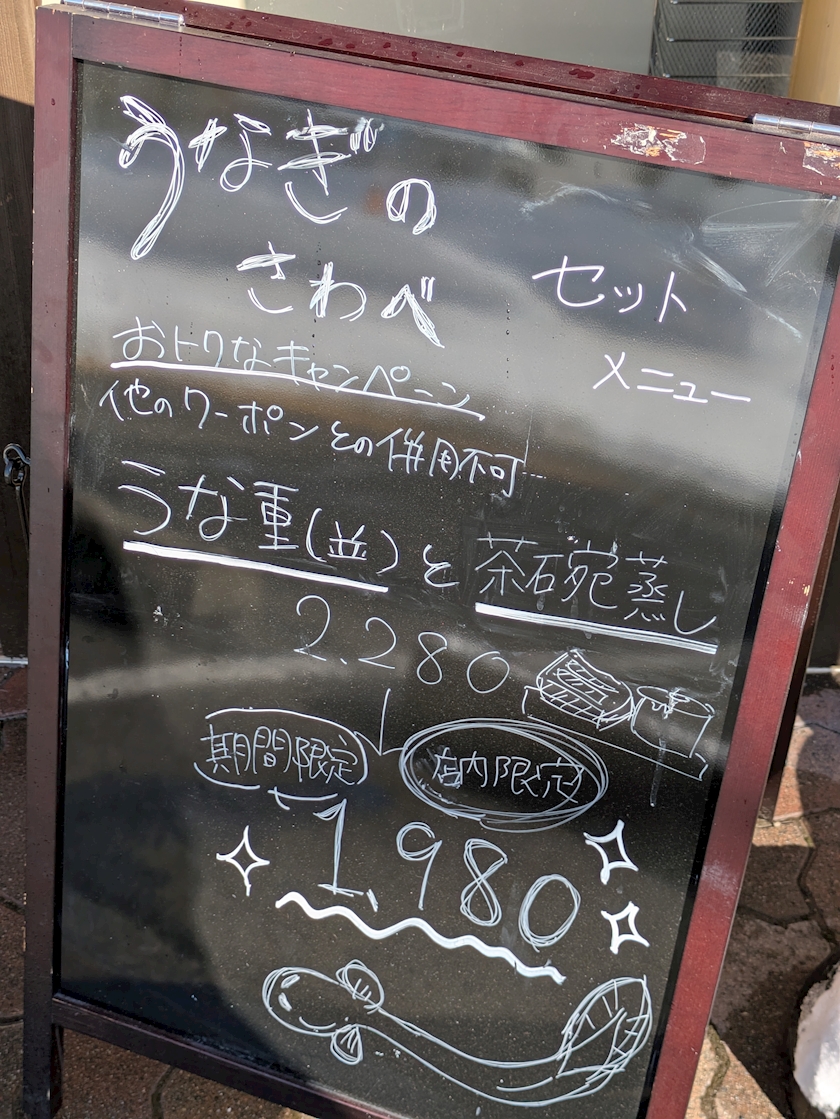 うなぎの
さわべ
セット
メニュー
おトクなキャンペーン
他のクーポンとの併用不可
うな重(並)と茶碗蒸し
2.280
期間限定
店内限定
1.980